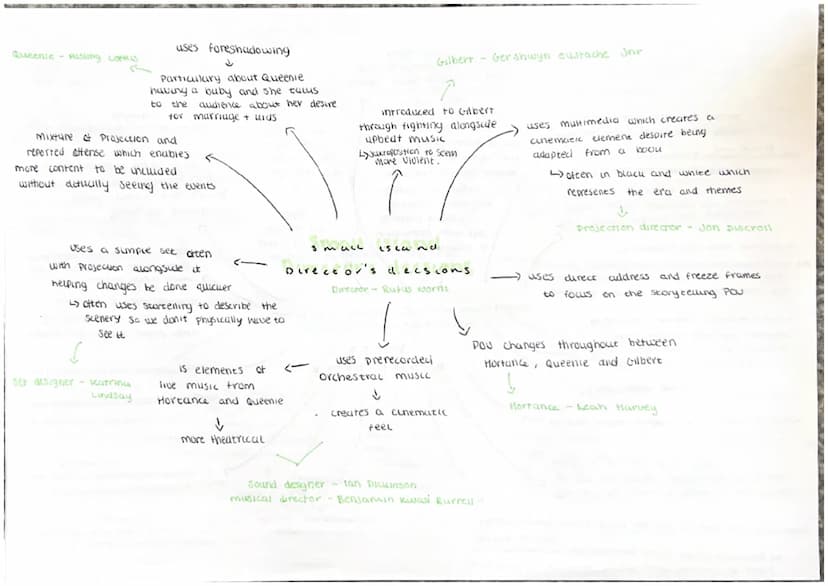 Small island
Director's decisions
Director - Rufus Norris
uses foreshadowing
Particulary about Queenie
having a baby and she talks
to the audience about her desire
for marriage + kids
Queenie - Aisling Loftus
Mixture of Projection and
reported offense which enables
more content to be included
without actually seeing the events
uses a simple set often
with projection alongside it
helping changes be done quicker
often uses storytelling to describe the
scenery so we don't physically have to
see it
Set designer - Katrina
Lindsay
introduced to Gilbert
through fighting alongside
upbeat music
Juxtaposition to seem
more violent.
Gilbert - Gershwyn Eustache Jnr
uses multimedia which creates a
cinematic element despite being
adapted from a book
often in black and white which
represents the era and themes
Projection director - Jon Driscoll
uses direct address and freeze frames
to focus on the storytelling POV
POV changes throughout between
Hortance, Queenie and Gilbert
Hortance - Leah Harvey
uses prerecorded
orchestral music
creates a cinematic
feel
is elements of
live music from
Hortance and Queenie
more theatrical
Sound designer - Ian Dickinson
musical director - Benjamin Kwasi Burrell